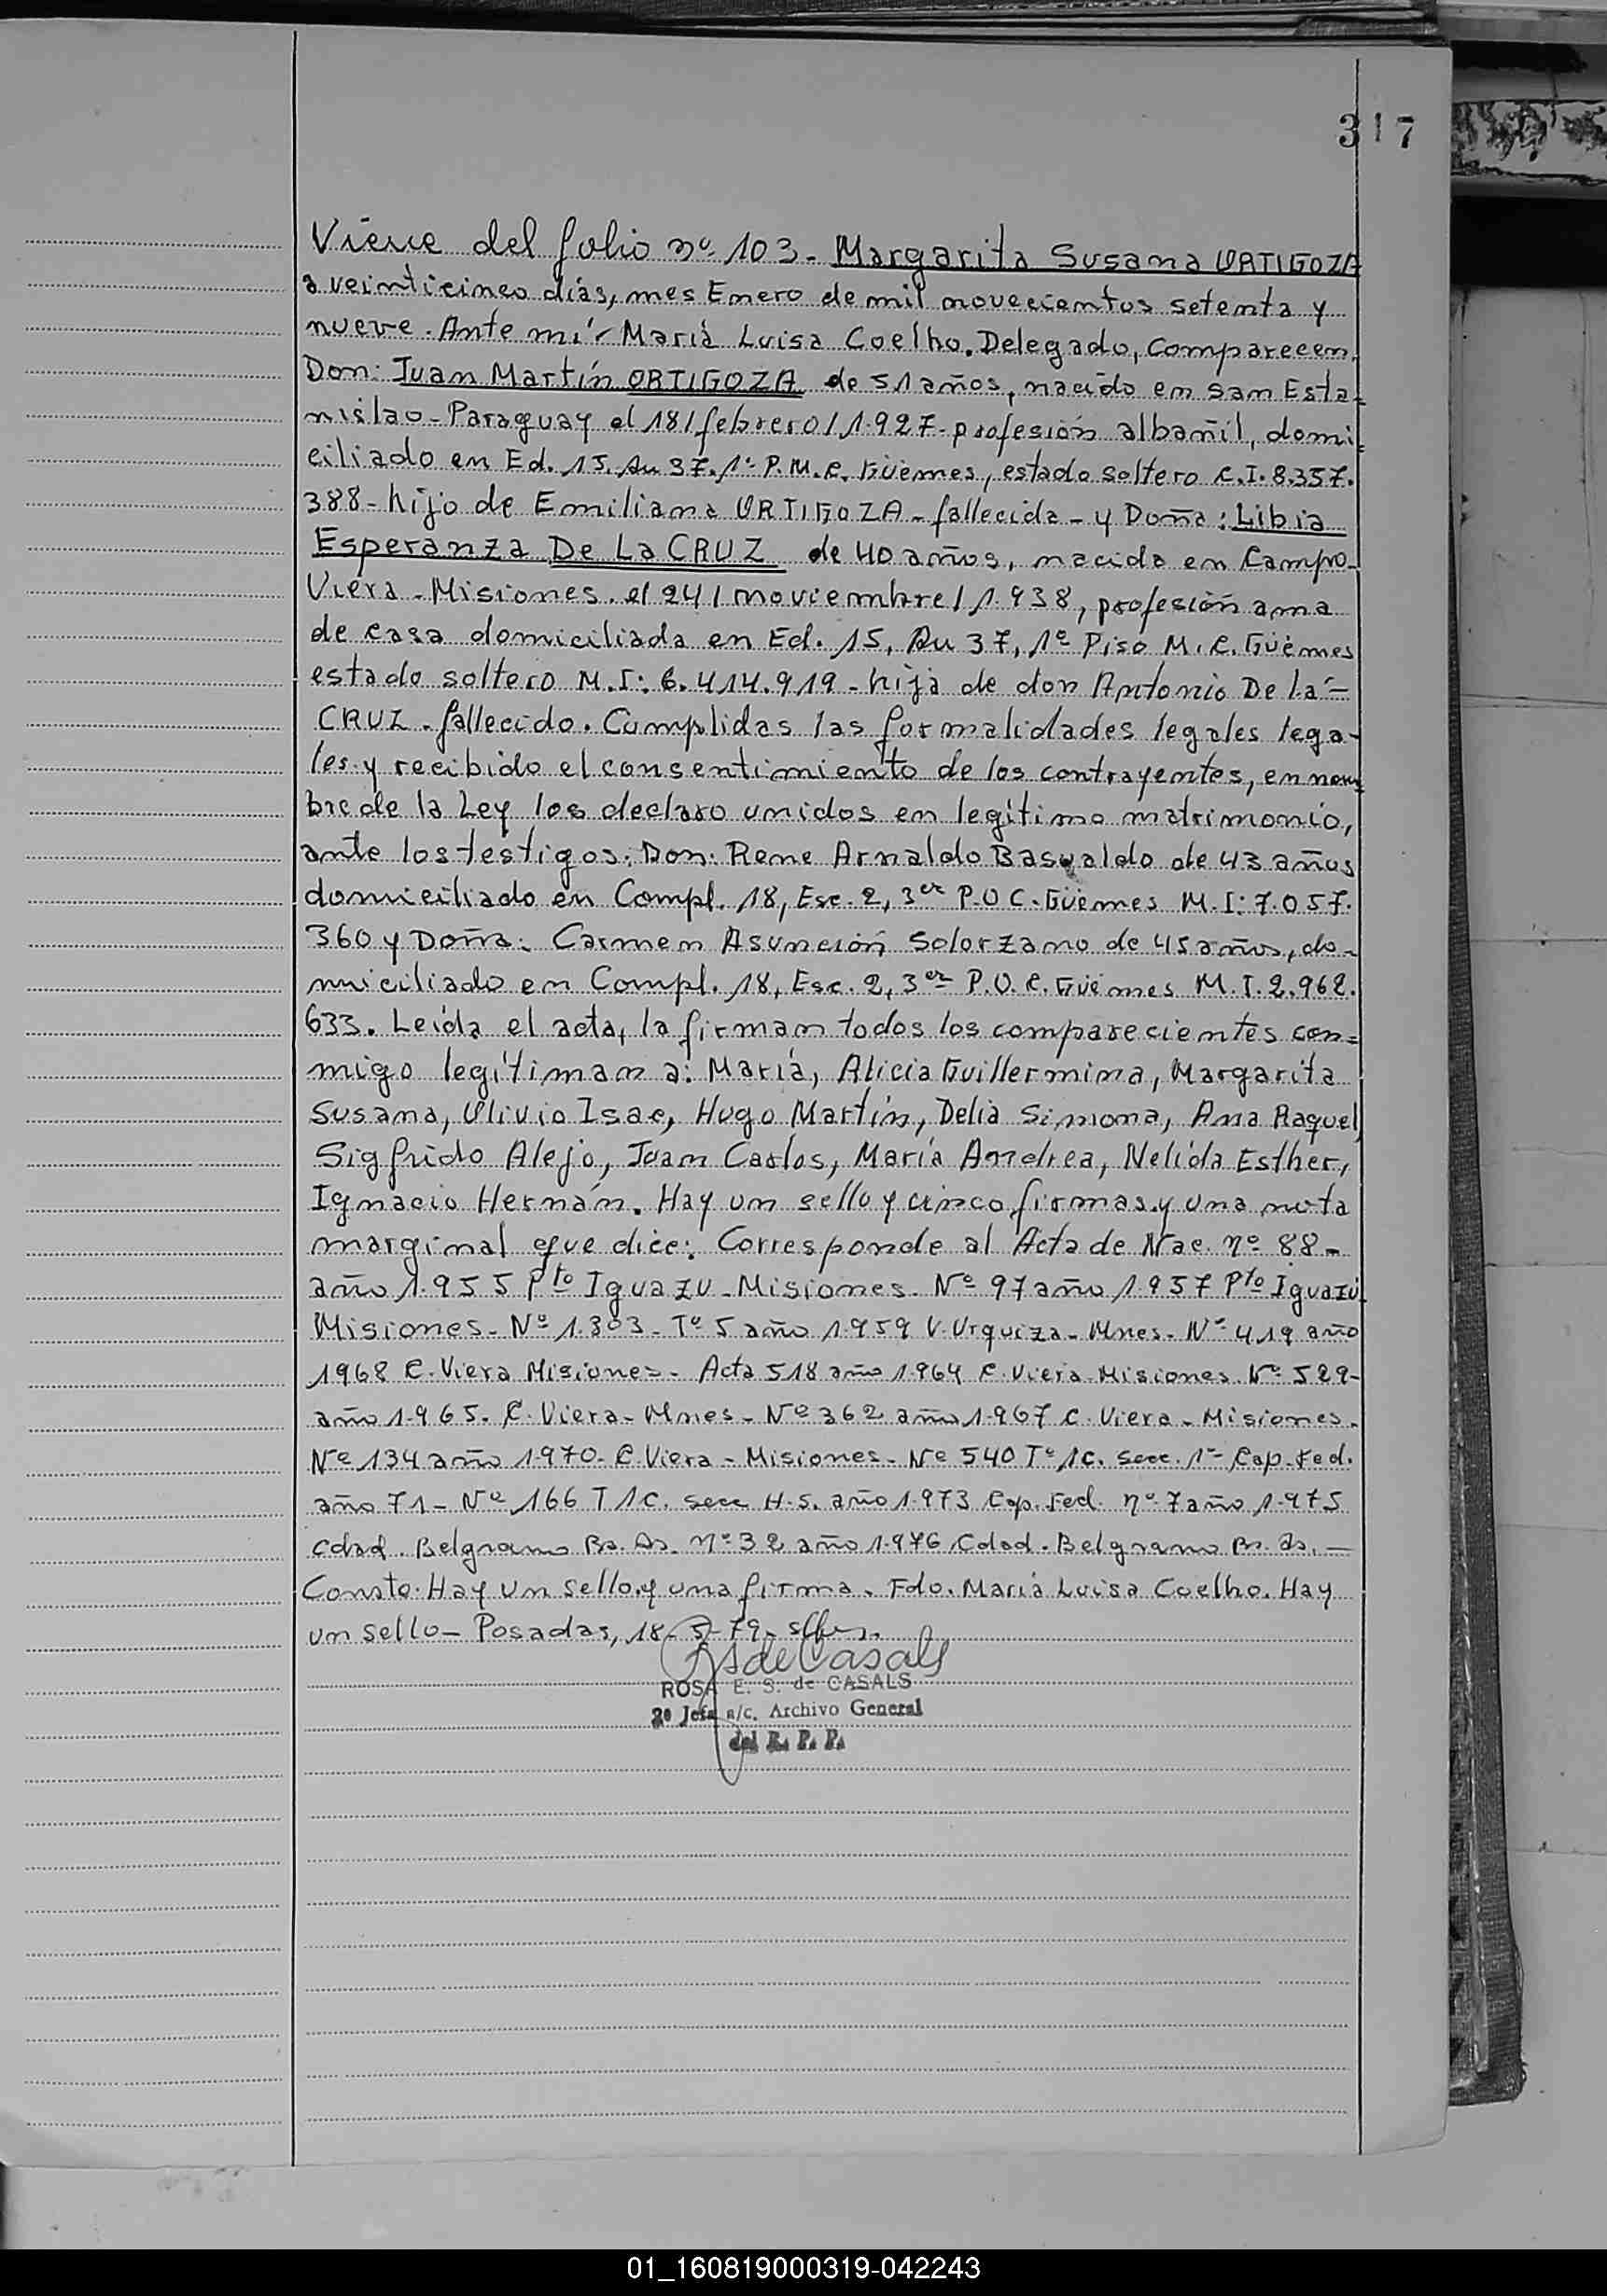 317
Viene del folio nº 103. Margarita Susana ORTIGOZA
a veinticinco días, mes Enero de mil novecientos setenta y
nueve. Ante mí - María Luisa Coelho. Delegado, comparecen
Don: Juan Martín ORTIGOZA de 51 años, nacido en San Esta=
nislao - Paraguay el 18/febrero/1.927 - profesión albañil, domi=
ciliado en Ed. 15. Au 37. 1º P. M. C. Güemes, estado soltero C.I. 8.357.
388 - hijo de Emiliana ORTIGOZA - fallecida - y Doña: Libia
Esperanza De La CRUZ de 40 años, nacida en Campo-
Viera - Misiones. el 24/noviembre/1.938, profesión ama
de casa domiciliada en Ed. 15, Au 37, 1º Piso M. C. Güemes
estado soltero M.I: 6.414.919 - hija de don Antonio De la -
CRUZ - fallecido. Cumplidas las formalidades legales lega-
les y recibido el consentimiento de los contrayentes, en nom=
bre de la Ley los declaro unidos en legítimo matrimonio,
ante los testigos: Don: Rene Arnaldo Basualdo de 43 años
domiciliado en Compl. 18, Esc. 2, 3er P. O C. Güemes M.I: 7.057.
360 y Doña: Carmen Asunción Solorzano de 45 años, do-
miciliado en Compl. 18, Esc. 2, 3er P. O. C. Güemes M.I. 2.962.
633. Leída el acta, la firman todos los comparecientes con=
migo legítiman a: María, Alicia Guillermina, Margarita
Susana, Olivio Isac, Hugo Martín, Delia Simona, Ana Raquel,
Sigfrido Alejo, Juan Carlos, María Andrea, Nelida Esther,
Ignacio Hernán. Hay un sello y cinco firmas y una nota
marginal que dice: Corresponde al Acta de Nac. nº 88 -
año 1.955 Pto Iguazu - Misiones - Nº 97 año 1.957 Pto Iguazú
Misiones - Nº 1.303 - Tº 5 año 1.959 V. Urquiza - Mnes - Nº 419 año
1968 C. Viera Misiones - Acta 518 año 1.964 C. Viera Misiones Nº 529 -
año 1.965. C. Viera - Mnes - Nº 362 año 1.967 C. Viera - Misiones.
Nº 134 año 1.970 - C. Viera - Misiones - Nº 540 Tº 1C. Secc. 1º Cap. Fed.
año 71 - Nº 166 T 1C. secc H.S. año 1.973 Cap. Fed. nº 7 año 1.975
Cdad. Belgrano Bs. As. nº 32 año 1.976 Cdad. Belgrano Bs. As. -
Conste. Hay un sello y una firma. Fdo. María Luisa Coelho. Hay
un sello - Posadas, 18-5-79.
RSdeCasals
ROSA E. S. de CASALS
2º Jefa a/c. Archivo General
del R. P. P.
01_160819000319-042243